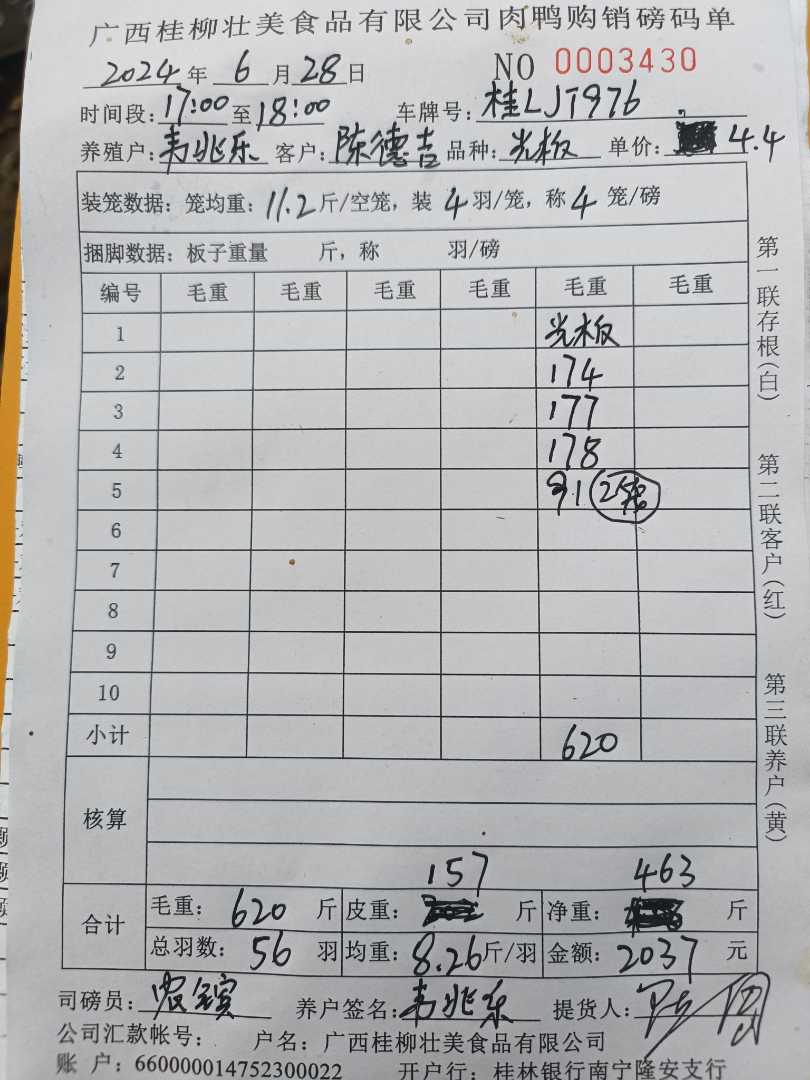 广西桂柳壮美食品有限公司肉鸭购销磅码单
2024年 6 月 28 日 NO 0003430
时间段: 17:00 至 18:00 车牌号: 桂LJT976
养殖户: 韦兆乐 客户: 陈德吉 品种: 光板 单价: 4.4
装笼数据: 笼均重: 11.2 斤/空笼, 装 4 羽/笼, 称 4 笼/磅
捆脚数据: 板子重量 斤, 称 羽/磅
编号 毛重 毛重 毛重 毛重 毛重 毛重
1 光板
2 174
3 177
4 178
5 91 2笼
6
7
8
9
10
小计 620
核算
157 463
合计 毛重: 620 斤 皮重: 斤 净重: 斤
总羽数: 56 羽 均重: 8.26 斤/羽 金额: 2037 元
司磅员: 养户签名: 韦兆乐 提货人:
公司汇款帐号: 户名: 广西桂柳壮美食品有限公司
账 户: 660000014752300022 开户行: 桂林银行南宁隆安支行
第一联存根(白)
第二联客户(红)
第三联养户(黄)